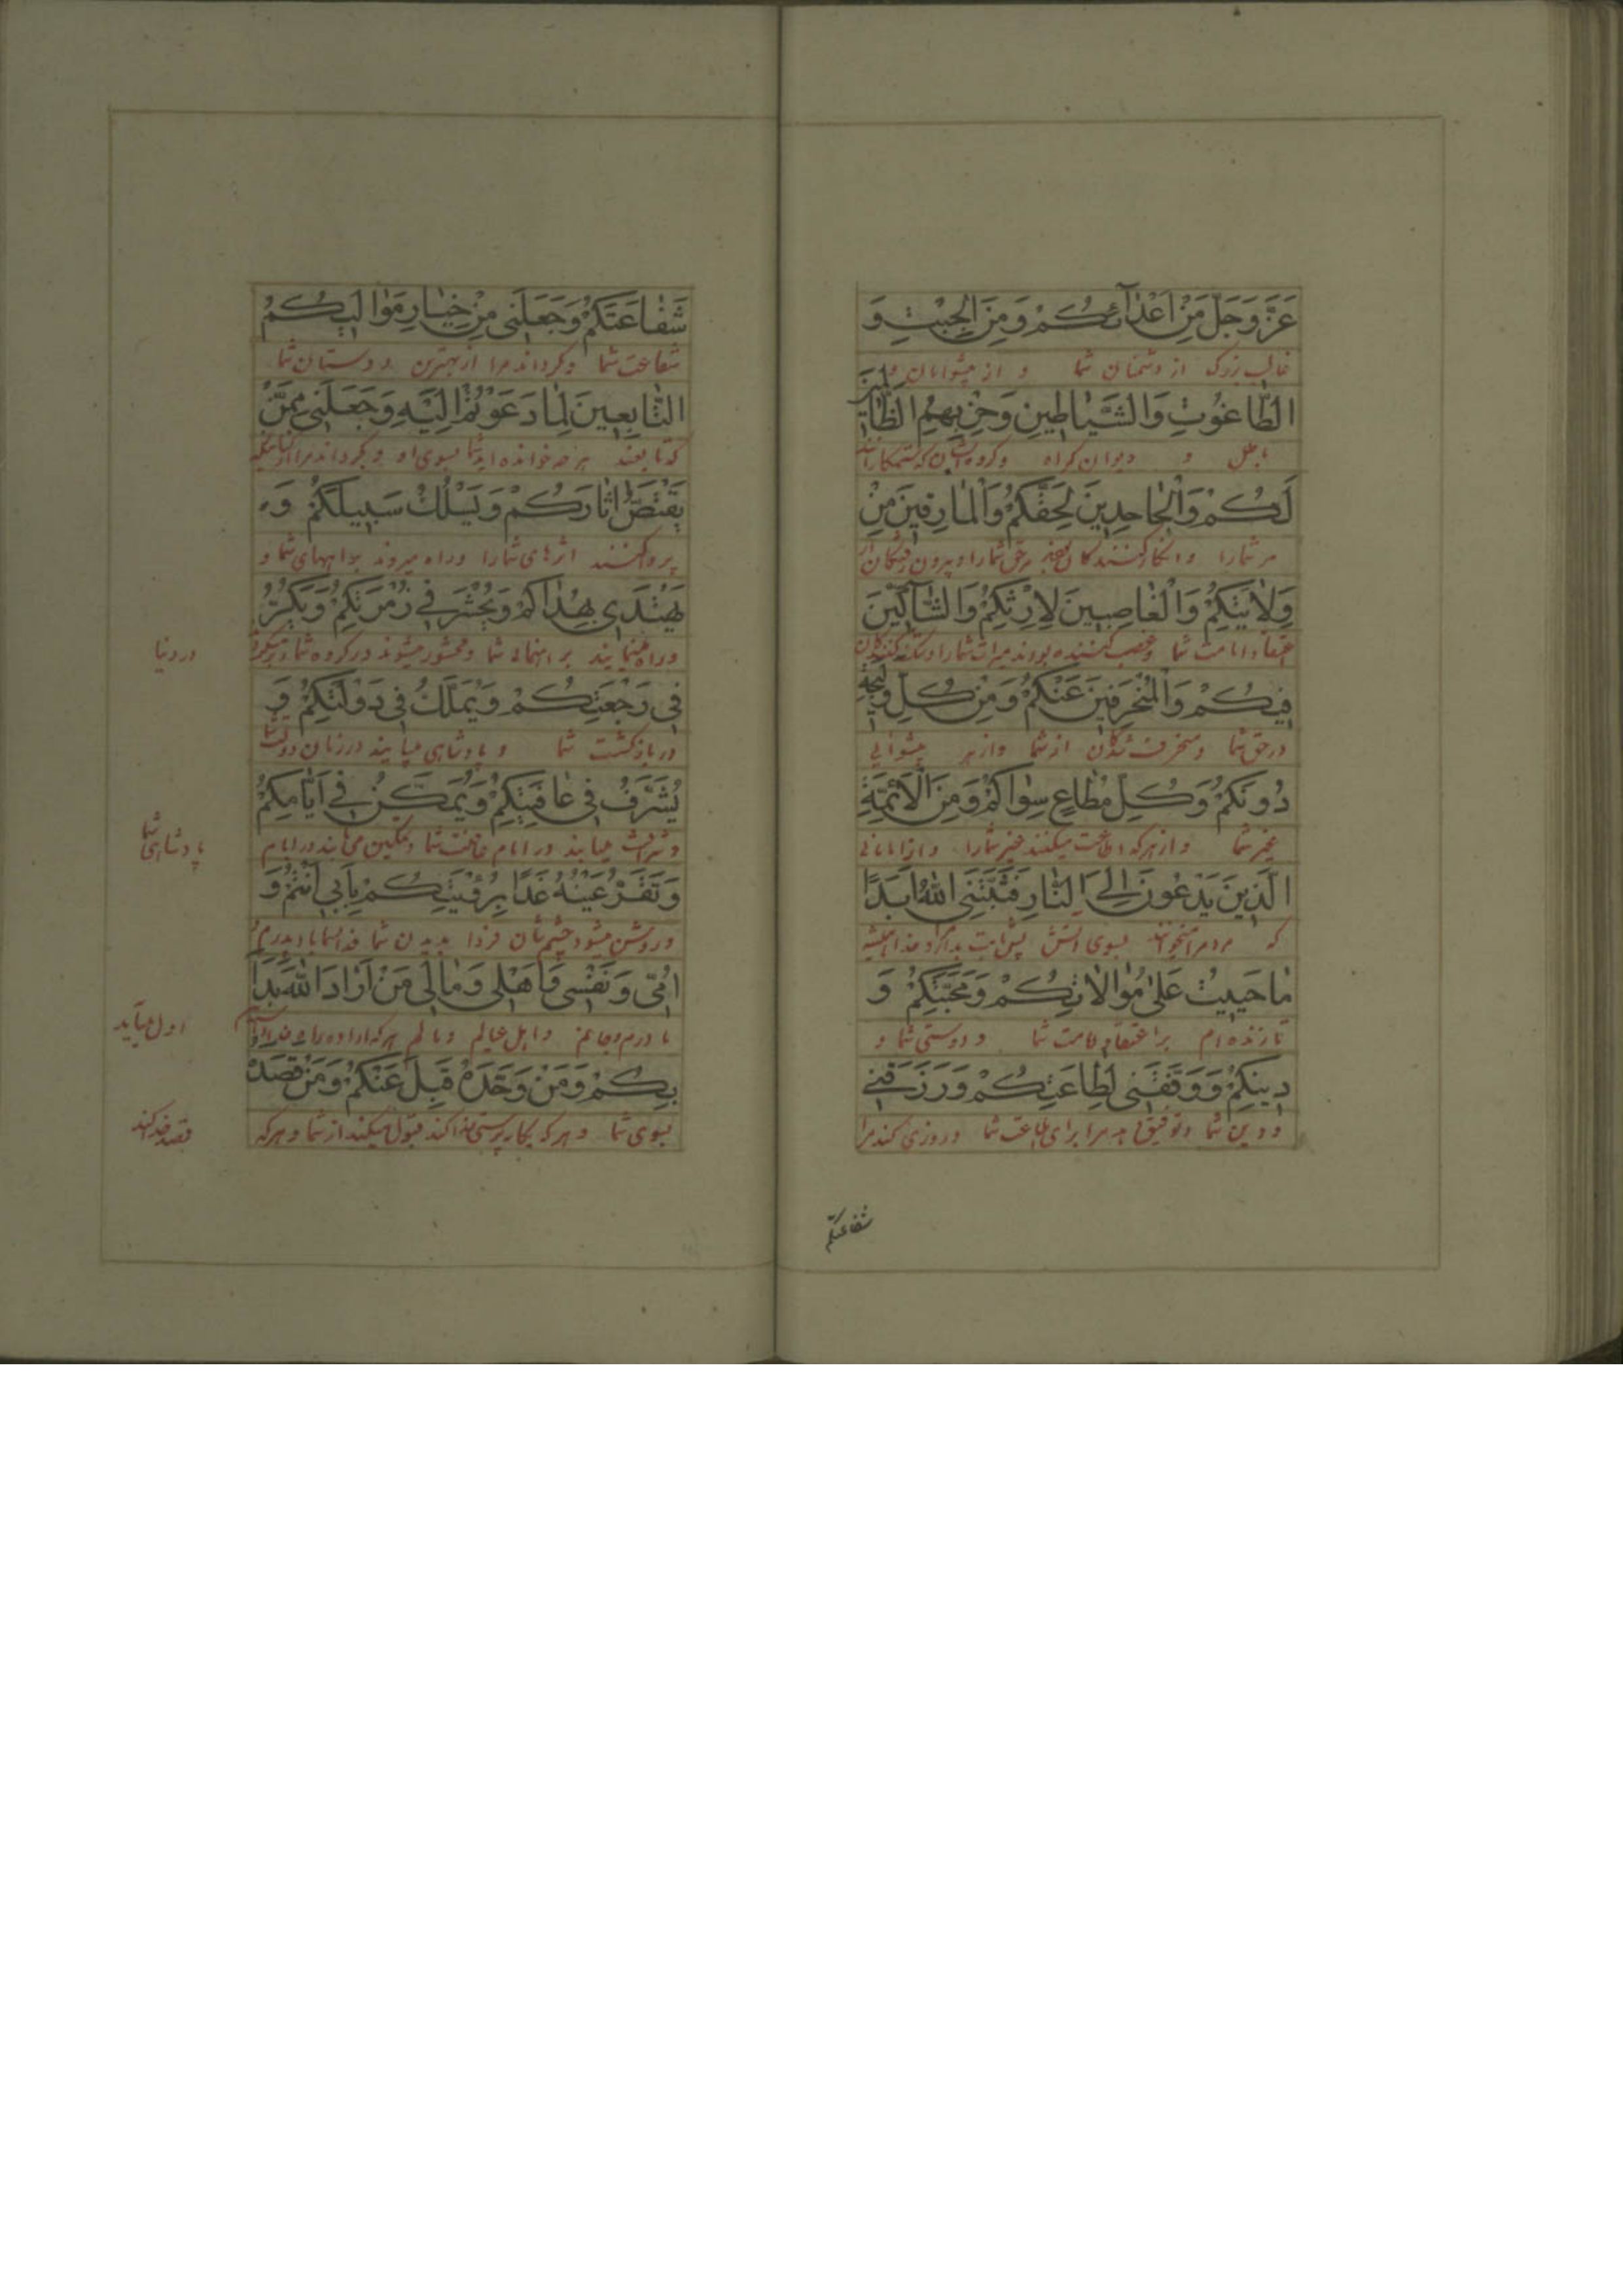 عَزَّ وَجَلَّ مِنْ اَعْدٰآئِكُمْ وَمِنَ الْجِبْتِ وَ
غالب بزرک از دشمنان شما و از پیشوایان
الطّٰاغُوتِ وَالشَّيٰاطِينِ وَحِزْبِهِمُ الظّٰالِمِينَ
باطل و دیوان کمراه و کروه ایشان که ستمکارانند
لَكُمْ وَالْجٰاحِدِينَ لِحَقِّكُمْ وَالْمٰارِقِينَ مِنْ
مر شما را و انکار کنندکان حق شما را و بیرون رفتکان از
وِلٰايَتِكُمْ وَالْغٰاصِبِينَ لِاِرْثِكُمْ وَالشّٰآكِّينَ
اعتقاد امامت شما و غصب کننده بودند میراث شما را و شک کنندکان
فِيكُمْ وَالْمُنْحَرِفِينَ عَنْكُمْ وَمِنْ كُلِّ وَلِيجَةٍ
در حق شما و منحرف شدکان از شما و از هر پیشوایی
دُونَكُمْ وَكُلِّ مُطٰاعٍ سِوٰاكُمْ وَمِنَ الْاَئِمَّةِ
بغیر شما و از هر که اطاعت میکنند غیر شما را و از امامانی
الَّذِينَ يَدْعُونَ اِلَى النّٰارِ فَثَبَّتَنِيَ اللّٰهُ اَبَدًا
که مردم را میخوانند بسوی آتش پس ثابت بدارد خدا همیشه
مٰا حَيِيتُ عَلٰى مُوٰالٰاتِكُمْ وَمَحَبَّتِكُمْ وَ
تا زنده ام بر اعتقاد امامت شما و دوستی شما و
دِينِكُمْ وَوَفَّقَنِي لِطٰاعَتِكُمْ وَرَزَقَنِي
و دین شما و توفیق دهد مرا برای طاعت شما و روزی کند مرا
شفاعتکم
شَفٰاعَتَكُمْ وَجَعَلَنِي مِنْ خِيٰارِ مَوٰالِيكُمُ
شفاعت شما و کرداند مرا از بهترین دوستان شما
التّٰابِعِينَ لِمٰا دَعَوْتُمْ اِلَيْهِ وَجَعَلَنِي مِمَّنْ
که تابعند هر چه خوانده اید شما بسوی او و بکرداند مرا از آنها که
يَقْتَصُّ اٰثٰارَكُمْ وَيَسْلُكُ سَبِيلَكُمْ وَ
پیروی کنند اثرهای شما را و راه میروند براههای شما و
يَهْتَدِي بِهُدٰاكُمْ وَيُحْشَرُ فِي زُمْرَتِكُمْ وَيَكِرُّ
و راه مینمایند براهنمائی شما و محشور میشوند در کروه شما و برمیکردند
در دنیا
فِي رَجْعَتِكُمْ وَيُمَلَّكُ فِي دَوْلَتِكُمْ وَ
در بازکشت شما و پادشاهی میابند در زمان دولت شما
يُشَرَّفُ فِي عٰافِيَتِكُمْ وَيُمَكَّنُ فِي اَيّٰامِكُمْ
و شرافت میابند در ایام عافیت شما و تمکین می یابند در ایام
پادشاهی شما
وَتَقَرُّ عَيْنُهُ غَدًا بِرُؤْيَتِكُمْ بِاَبِي اَنْتُمْ وَ
و روشن میشود چشم شان فردا بدیدن شما فدای شما باد پدرم
اُمِّي وَنَفْسِي وَاَهْلِي وَمٰالِي مَنْ اَرٰادَ اللّٰهَ بَدَاَ
مادرم و جانم و اهل عیالم و مالم هر که اراده راه خدا
اول میآید
بِكُمْ وَمَنْ وَحَّدَهُ قَبِلَ عَنْكُمْ وَمَنْ قَصَدَهُ
بسوی شما و هر که یکتاپرستی خدا کند قبول میکند از شما و هر که
قصد خدا کند